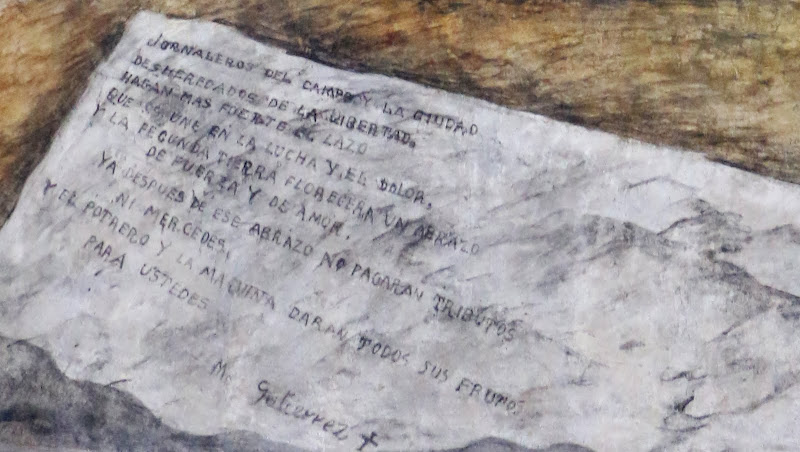 JORNALEROS DEL CAMPO Y LA CIUDAD
DESHEREDADOS DE LA LIBERTAD.
HAGAN MAS FUERTE EL LAZO
QUE LOS UNE EN LA LUCHA Y EL DOLOR,
Y LA FECUNDA TIERRA FLORECERA UN ABRAZO
DE FUERZA Y DE AMOR.
YA DESPUES DE ESE ABRAZO NO PAGARAN TRIBUTOS
NI MERCEDES,
Y EL POTRERO Y LA MAQUINA DARAN TODOS SUS FRUTOS
PARA USTEDES
Gutierrez